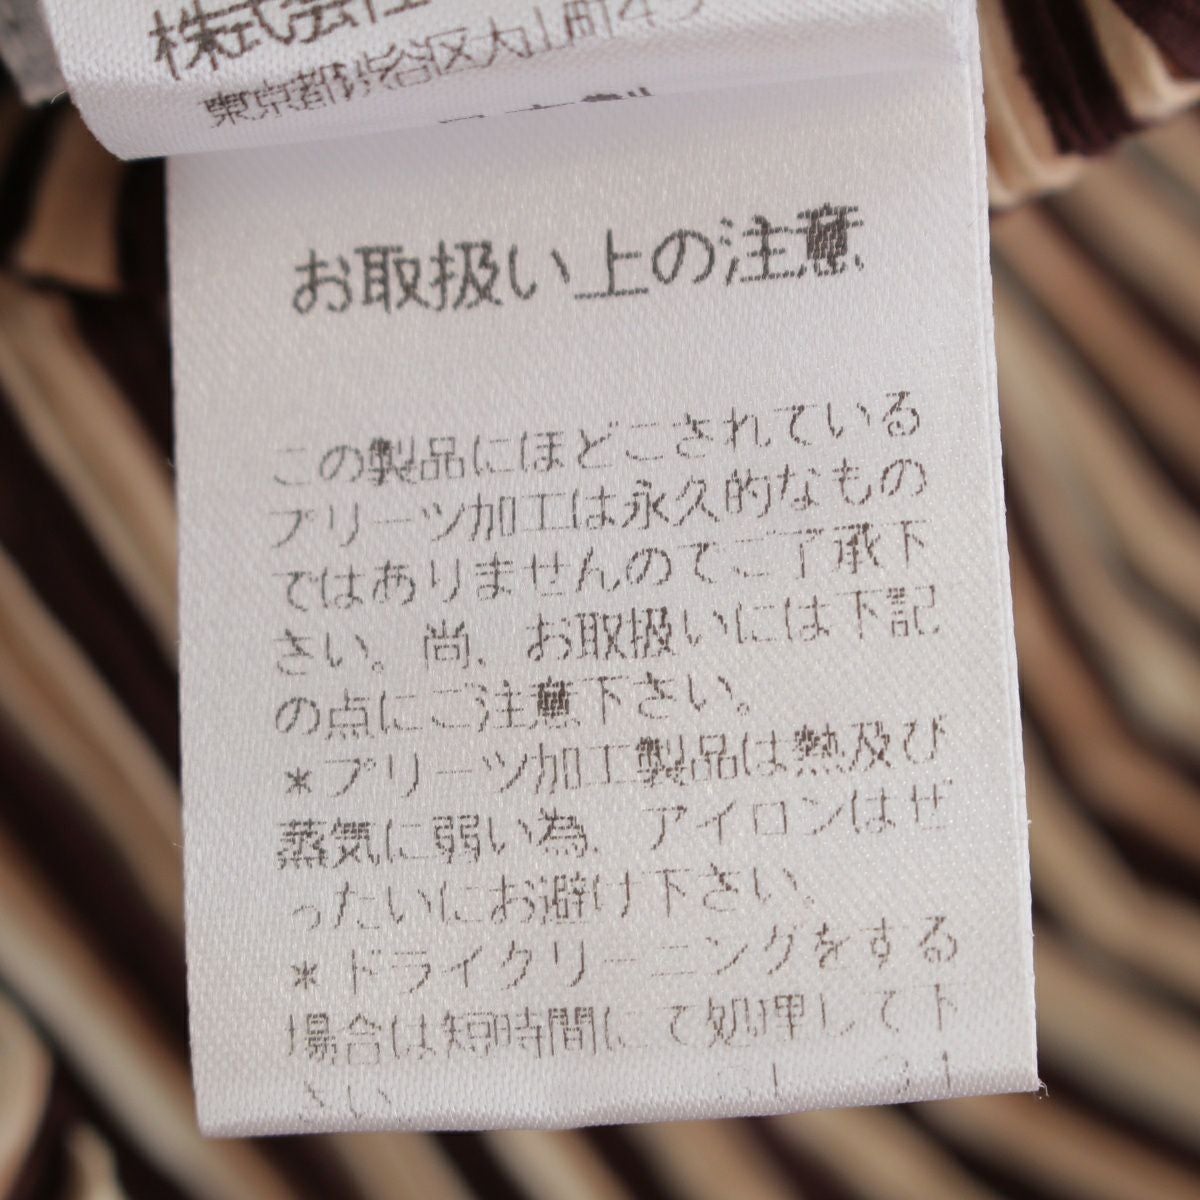 株式会社
東京都渋谷区大山町45
お取扱い上の注意
この製品にほどこされている
プリーツ加工は永久的なもの
ではありませんのでご了承下
さい。尚、お取扱いには下記
の点にご注意下さい。
*プリーツ加工製品は熱及び
蒸気に弱い為、アイロンはぜ
ったいにお避け下さい。
*ドライクリーニングをする
場合は短時間にて処理して下
さい